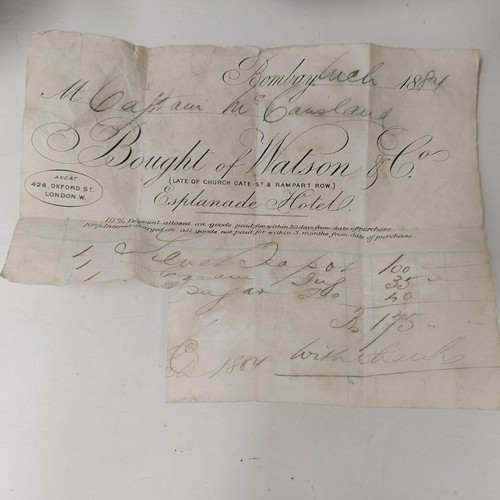 Bombay 1884
Mr Captain McCausland
Bought of Watson & Co.
(LATE OF CHURCH GATE ST & RAMPART ROW)
AND AT
428. OXFORD ST.
LONDON.W.
Esplanade Hotel.
10% Discount allowed on goods paid for within 30 days from date of purchase.
10% Interest charged on all goods not paid for within 3 months from date of purchase.
1 Tea pot 100
1 Cream Jug 35
1 Sugar Do 40
Rs 175
1884 With thanks